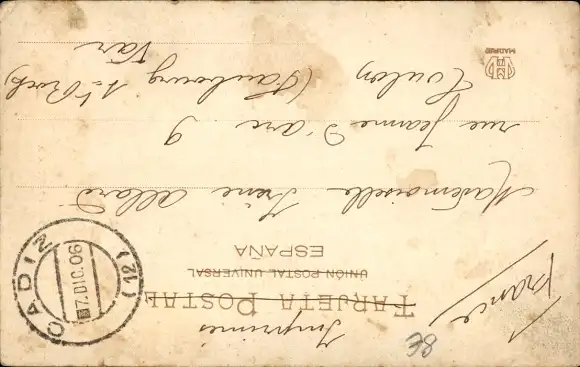 Imprimés
TARJETA POSTAL
UNIÓN POSTAL UNIVERSAL
ESPAÑA
France
38
CADIZ
7.DIC.06
(12)
Mademoiselle Irène Allard
rue Jeanne d'arc 9
Toulon (Faubourg St Roch)
Var
HM
MADRID